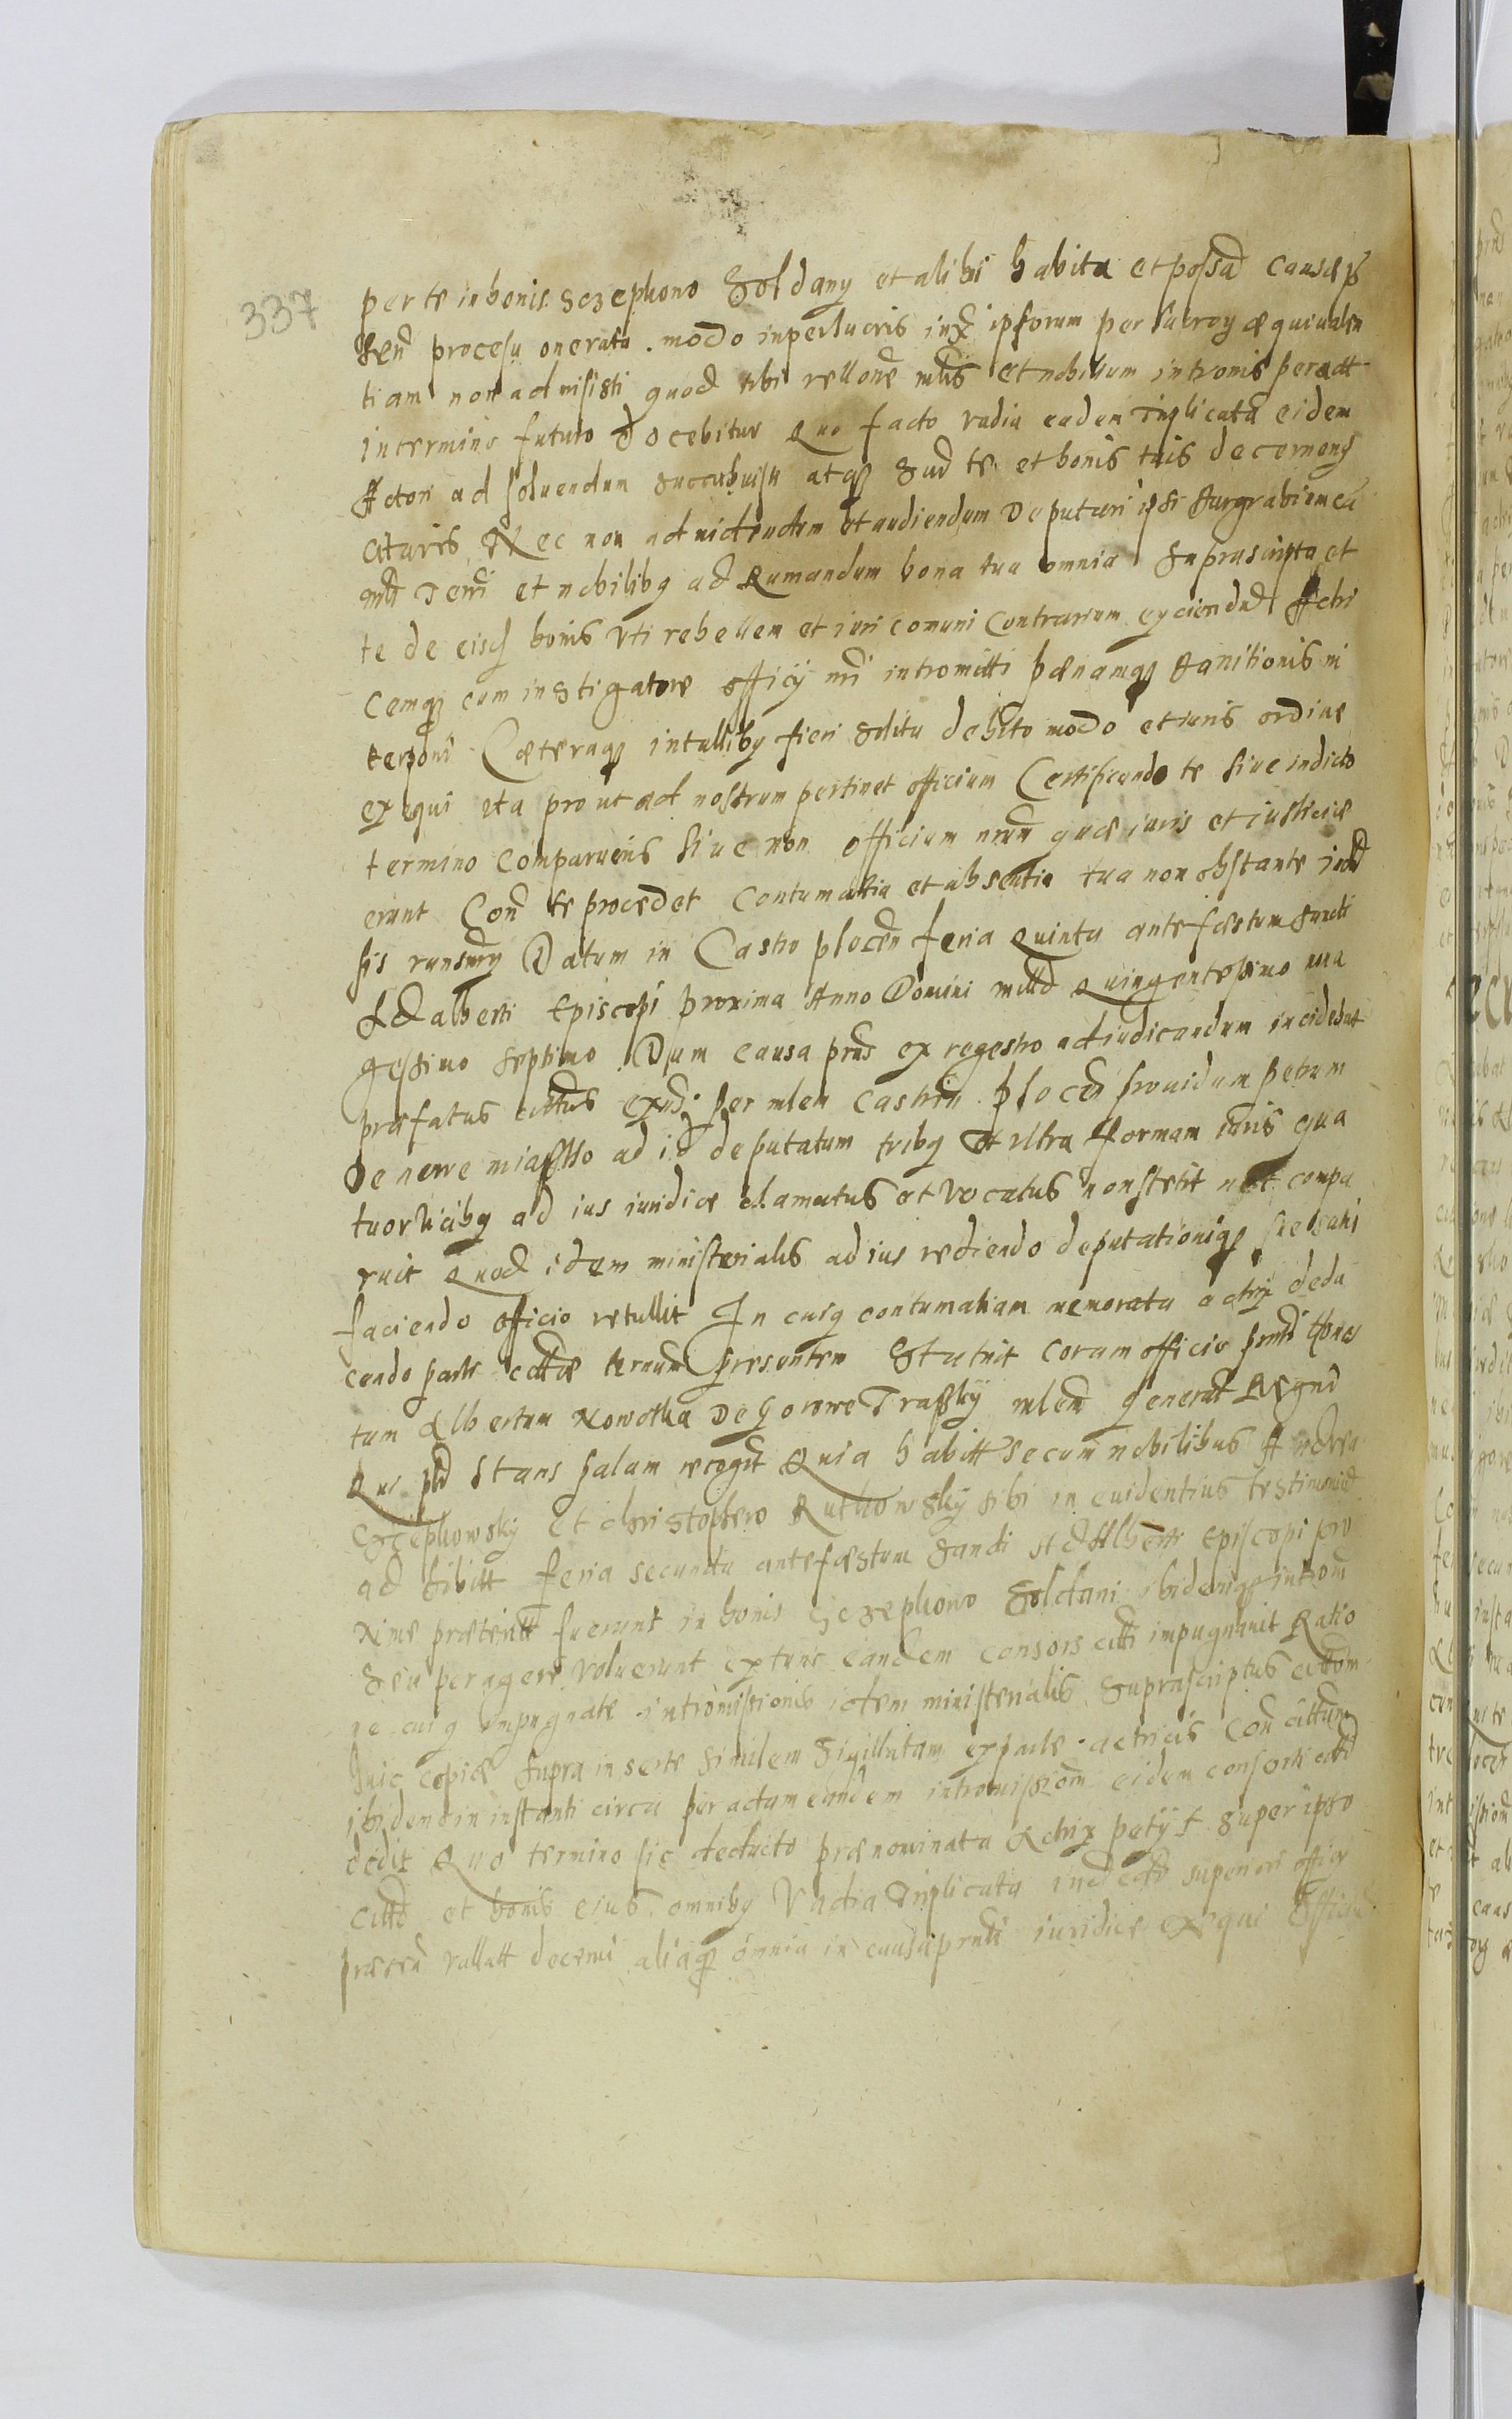 337
per te in bonis Sczephono Soldany et alibi habita et possa causæ p
sen processu onerata modo inperlucris iux ipsorum per lucroꝶ æquiualen
tiam non admisisti quod tibi relone mlis et nobilium intromis peractt
in termino futuro docebitur Quo facto vadia eadem Triplicata eidem
Actori ad soluendum succubuisti atqꝫ sud te et bonis tuis decerneng
ceturis Nec non ad uidendum et audiendum Deputari ipsi Burgrabiom cu
mli Terri et nobilibꝫ ad Rumandum bona tua omnia suprascripta et
te de eisd bonis vti rebellem et iuri comuni Contrarium eyciendu Actri
cemqꝫ cum instigatore officij nri intromitti pænamqꝫ banitionis in
terponi Cæteraqꝫ in tallibꝫ fieri solita debito modo et iuris ordine
exequi ita prout ad nostrum pertinet officium Certificando te siue in dicto
termino comparueris siue non officium nrum quæ iuris et iusticiæ
erunt Con te procedet Contumatia et absentia tua non obstante
Datum in Castro plocen feria Quinta ante fæstum Sancti
Adalberti Episcopi proxima Anno Domini milld Quingentesimo nona
gessimo septimo Dum causa prns ex regestro ad iudicandum incidebat
præfatus cittus per mlem Castren plocen prouidum Petrum
De neweMiassto ad id deputatum tribꝫ et ultra formam iuris qua
tuor vicibꝫ ad ius iuridice clamatus et vocatus non stetit nec compa
ruit Quod idem ministerialis ad ius reddendo deputationiqꝫ suæ satis
faciendo officio retullit In cuiꝫ contumatiam memorata actrix dedu
cendo parti cittæ ternum presentem Statuit Coram officio prnti Hones
tum Albertum Nowothka De Gorowe Trapsky mlem generał Regni
Qui ptd Stans palam recogt Quia habitt secum nobilibus Andrea
Sczephowsky et christophero Ruthowsky sibi in euidentius testimonid
ad hibitt feria secunda ante fæstum Sancti Adalberti Episcopi pro
xime preteritt fuerunt in bonis Sczephono Soldani ibidemqꝫ introm
seu peragere voluerunt ex tunc eandem consors citti impugnauit Ratio
ne cuiꝫ impugnate intromissionis idem ministerialis suprascriptus cittom
huic copiæ supra in serte similem sigillatam ex parte actricis Con cittum
ibidem in instanti circa peractam eandem intromissiom eidem consorti citti
dedit Quo termino sic deducto prænominata Actrix petyt super ipso
citto et bonis eius omnibꝫ Vadia Triplicata superiori officio
præsen vallatt decerni aliaqꝫ omnia in causa prnti iuridice exequi Officiu